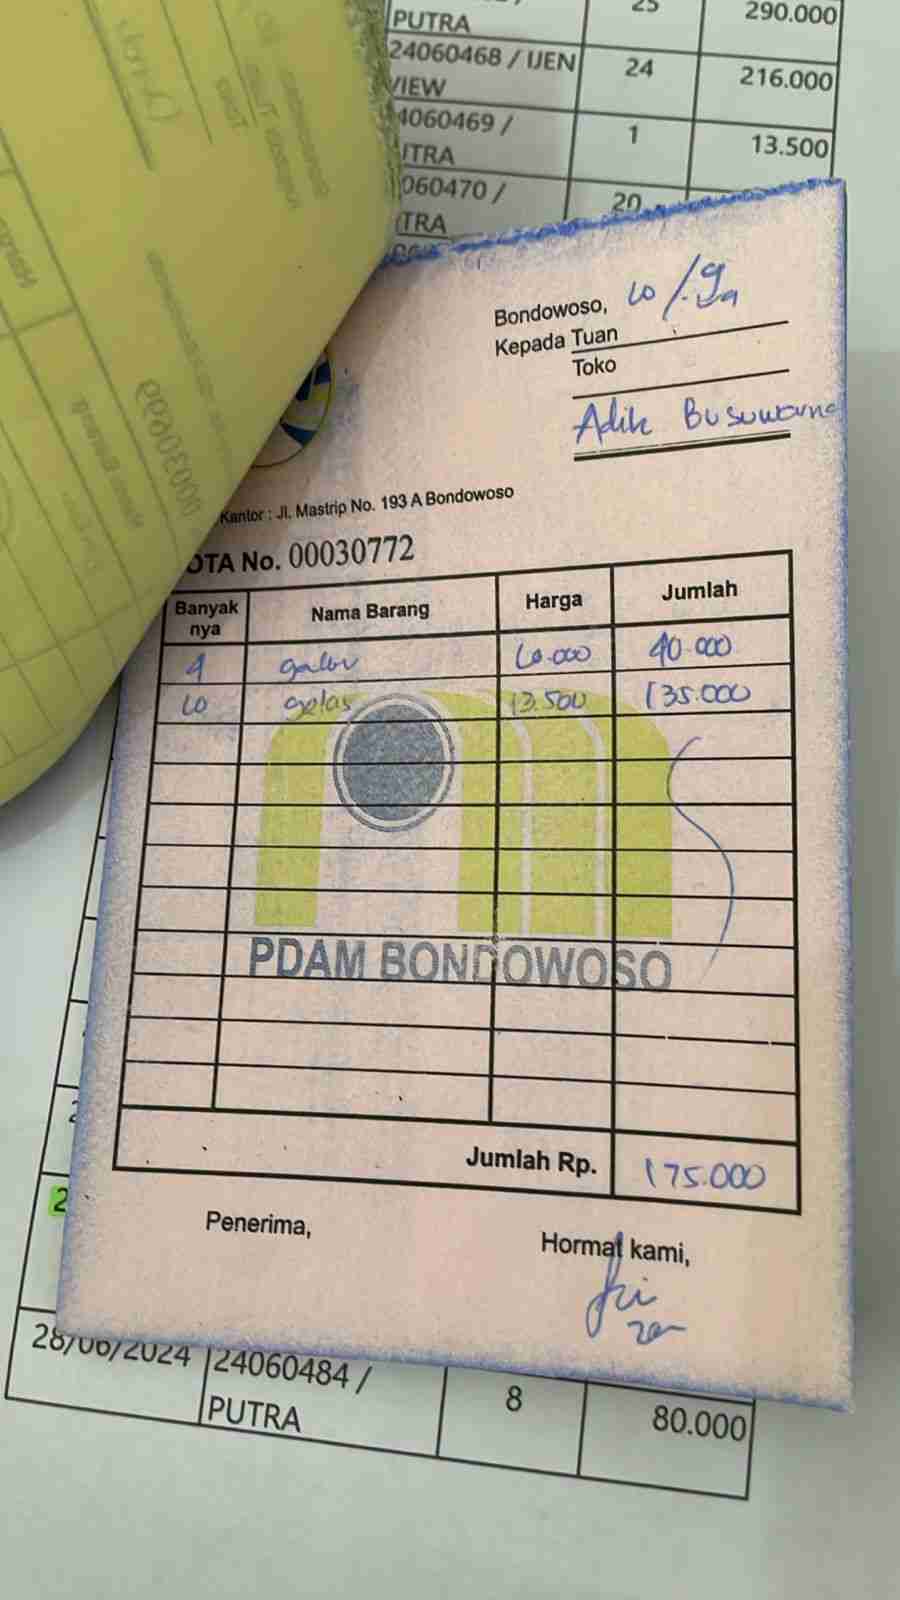 PUTRA
25
290.000
24060468 / IJEN
VIEW
24
216.000
4060469 /
UTRA
1
13.500
060470 /
TRA
20
Bondowoso, 10/
Kepada Tuan
Toko
Adik Busuwarno
Kantor : Jl. Mastrip No. 193 A Bondowoso
OTA No. 00030772
Banyak nya Nama Barang Harga Jumlah
4 galon 10.000 40.000
10 gelas 13.500 135.000
PDAM BONDOWOSO
Jumlah Rp. 175.000
Penerima, Hormat kami,
28/06/2024 24060484 /
PUTRA
8
80.000
00030699